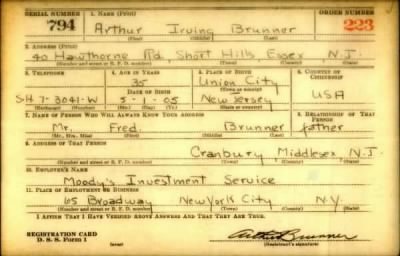 SERIAL NUMBER 1. NAME (Print) ORDER NUMBER
794 Arthur Irving Brunner 223
(First) (Middle) (Last)
2. ADDRESS (Print)
40 Hawthorne Rd, Short Hills, Essex N.J.
(Number and street or R. F. D. number) (Town) (County) (State)
3. TELEPHONE 4. AGE IN YEARS 5. PLACE OF BIRTH 6. COUNTRY OF CITIZENSHIP
35 Union City
DATE OF BIRTH (Town or county)
SH 7-3041-W 5-1-05 New Jersey USA
(Exchange) (Number) (Mo.) (Day) (Yr.) (State or country)
7. NAME OF PERSON WHO WILL ALWAYS KNOW YOUR ADDRESS 8. RELATIONSHIP OF THAT PERSON
Mr. Fred Brunner father
(Mr., Mrs., Miss) (First) (Middle) (Last)
9. ADDRESS OF THAT PERSON
Cranbury, Middlesex N.J.
(Number and street or R. F. D. number) (Town) (County) (State)
10. EMPLOYER'S NAME
Moody's Investment Service
11. PLACE OF EMPLOYMENT OR BUSINESS
65 Broadway New York City N.Y.
(Number and street or R. F. D. number) (Town) (County) (State)
I AFFIRM THAT I HAVE VERIFIED ABOVE ANSWERS AND THAT THEY ARE TRUE.
REGISTRATION CARD Arthur Brunner
D. S. S. Form 1 (over) (Registrant's signature)